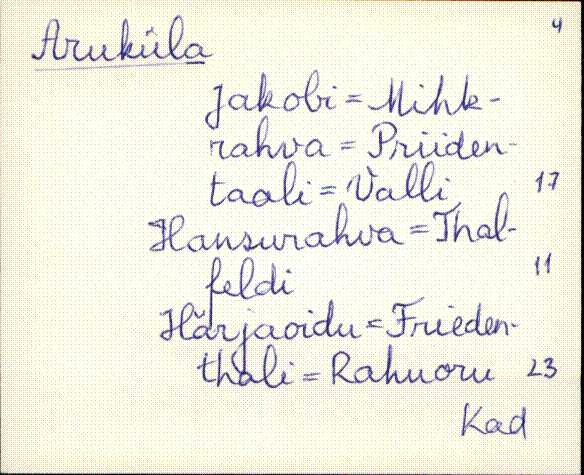 4
Aruküla
Jakobi = Mihk-
rahva = Priiden-
taali = Valli 17
Hansurahva = Thal-
feldi 11
Härjaoidu = Frieden-
thali = Rahuoru 23
Kad